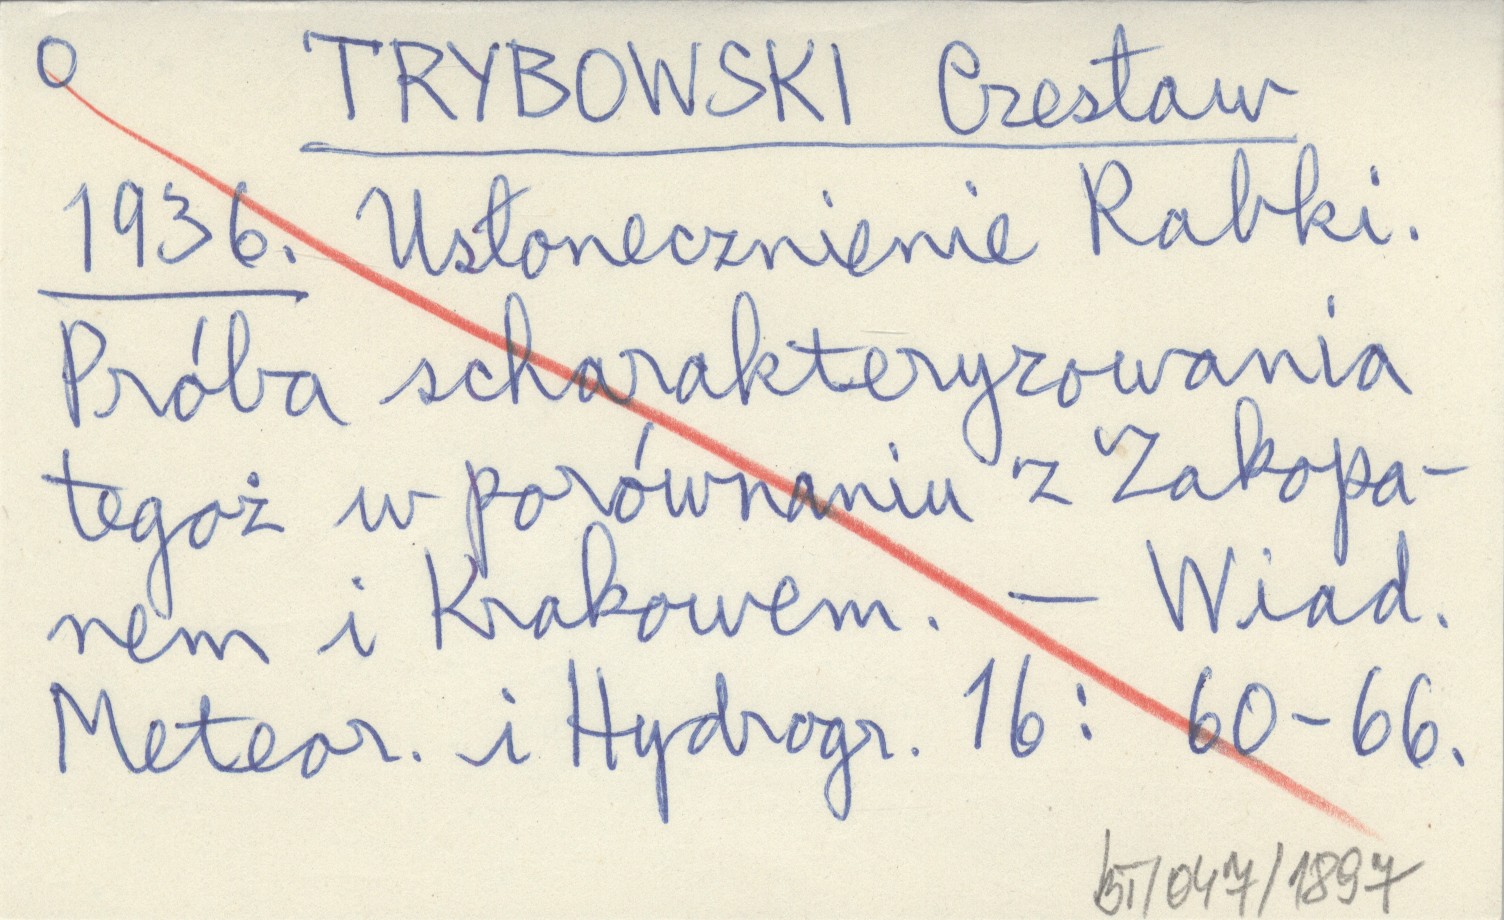 O TRYBOWSKI Czesław
1936. Usłonecznienie Rabki.
Próba scharakteryzowania
tegoż w porównaniu z Zakopa-
nem i Krakowem. — Wiad.
Meteor. i Hydrogr. 16: 60-66.
BT/047/1897